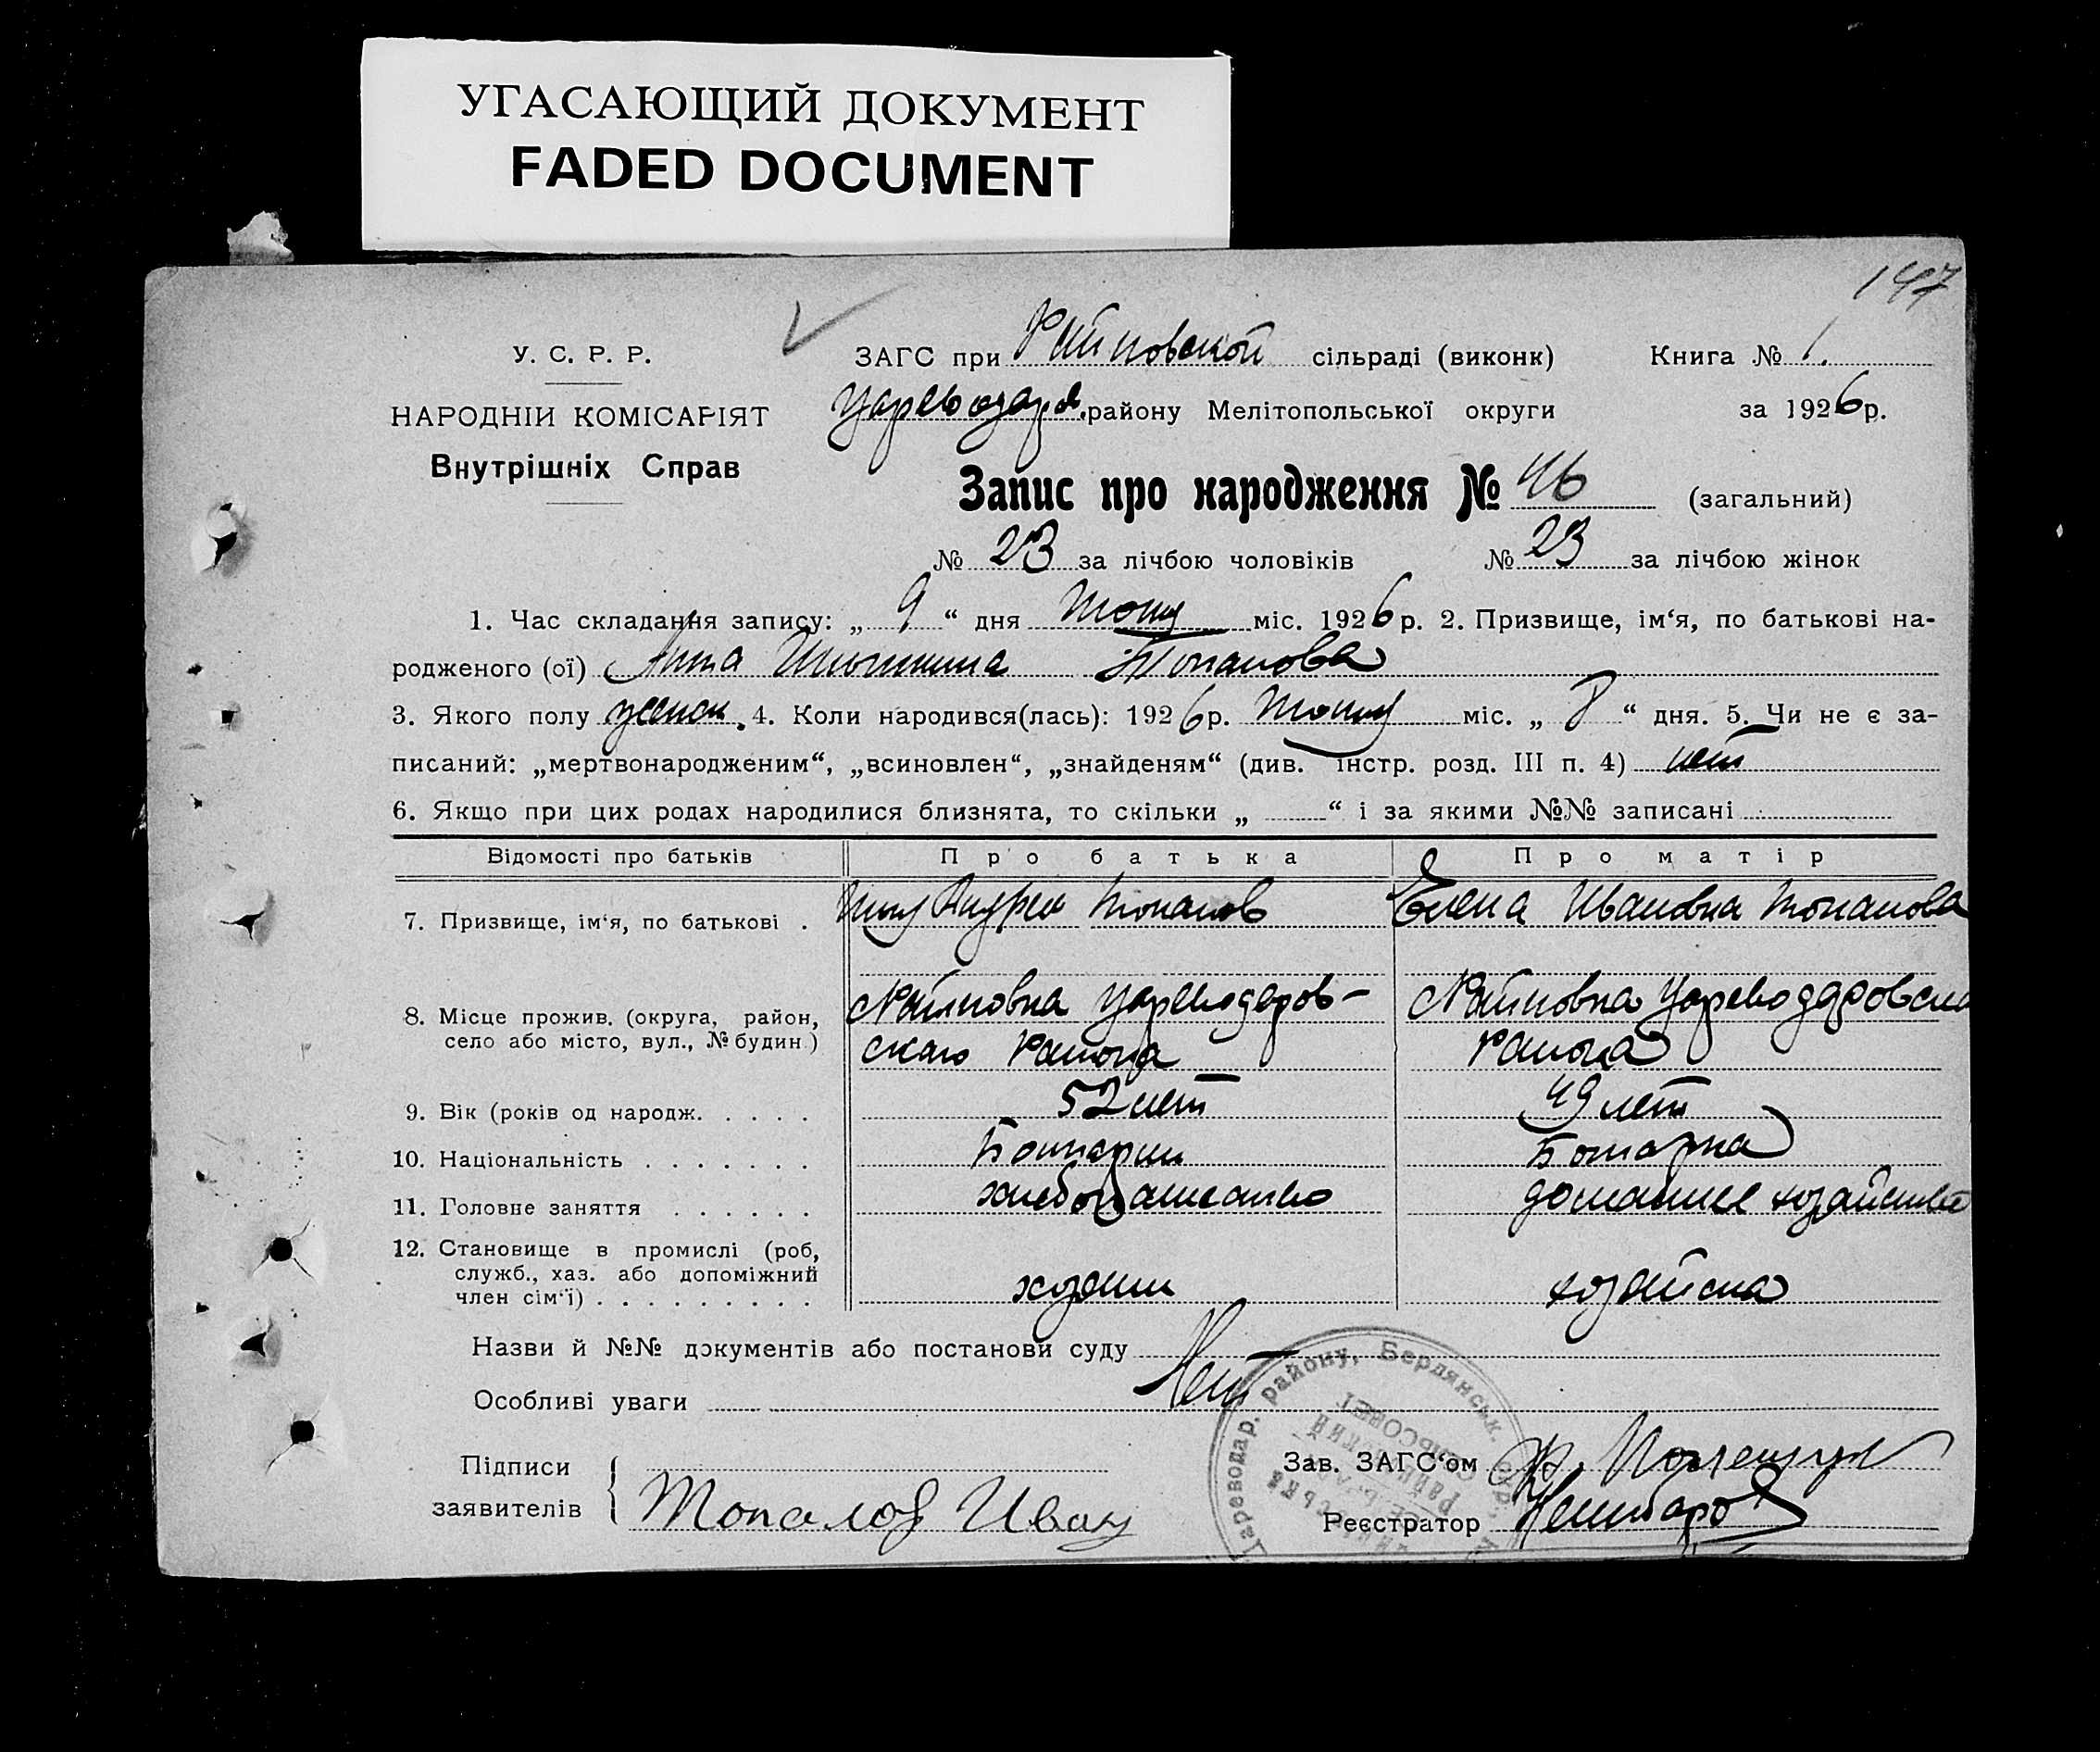 УГАСАЮЩИЙ ДОКУМЕНТ
FADED DOCUMENT
147
У. С. Р. Р.
НАРОДНІЙ КОМІСАРІЯТ
Внутрішніх Справ
ЗАГС при Райновской сільраді (виконк) Книга № 1
Цареводар. району Мелітопольської округи за 1926р.
Запис про народження № 46 (загальний)
№ 23 за лічбою чоловіків № 23 за лічбою жінок
1. Час складання запису: „ 9 “ дня міс. 1926р. 2. Призвище, ім‘я, по батькові на-
родженого (ої) Анна Топалова
3. Якого полу женск. 4. Коли народився(лась): 1926р. міс. „ 8 “ дня. 5. Чи не є за-
писаний: „мертвонародженим“, „всиновлен“, „знайденям“ (див. інстр. розд. III п. 4) нет
6. Якщо при цих родах народилися близнята, то скільки „ “ і за якими №№ записані
Відомості про батьків Про батька Про матір
7. Призвище, ім‘я, по батькові . Топалов Елена Ивановна Топалова
8. Місце прожив. (округа, район, село або місто, вул., № будин.)
Райновка Цареводаров-
скаго Района
Райновка Цареводаровска
Района
9. Вік (років од народж. . . . . 52 лет 49 лет
10. Національність . . . . . . . Болгарин Болгарка
11. Головне заняття . . . . . . хлебопашество домашнее хозяйство
12. Становище в промислі (роб,
служб., хаз. або допоміжний
член сім‘ї) . . . . . . . . . хозяин хозяйка
Назви й №№ документів або постанови суду
Особливі уваги Нет
Підписи
заявителів Топалов Иван
Зав. ЗАГС‘ом
Реєстратор
Цареводар. району, Бердянськ. окр.